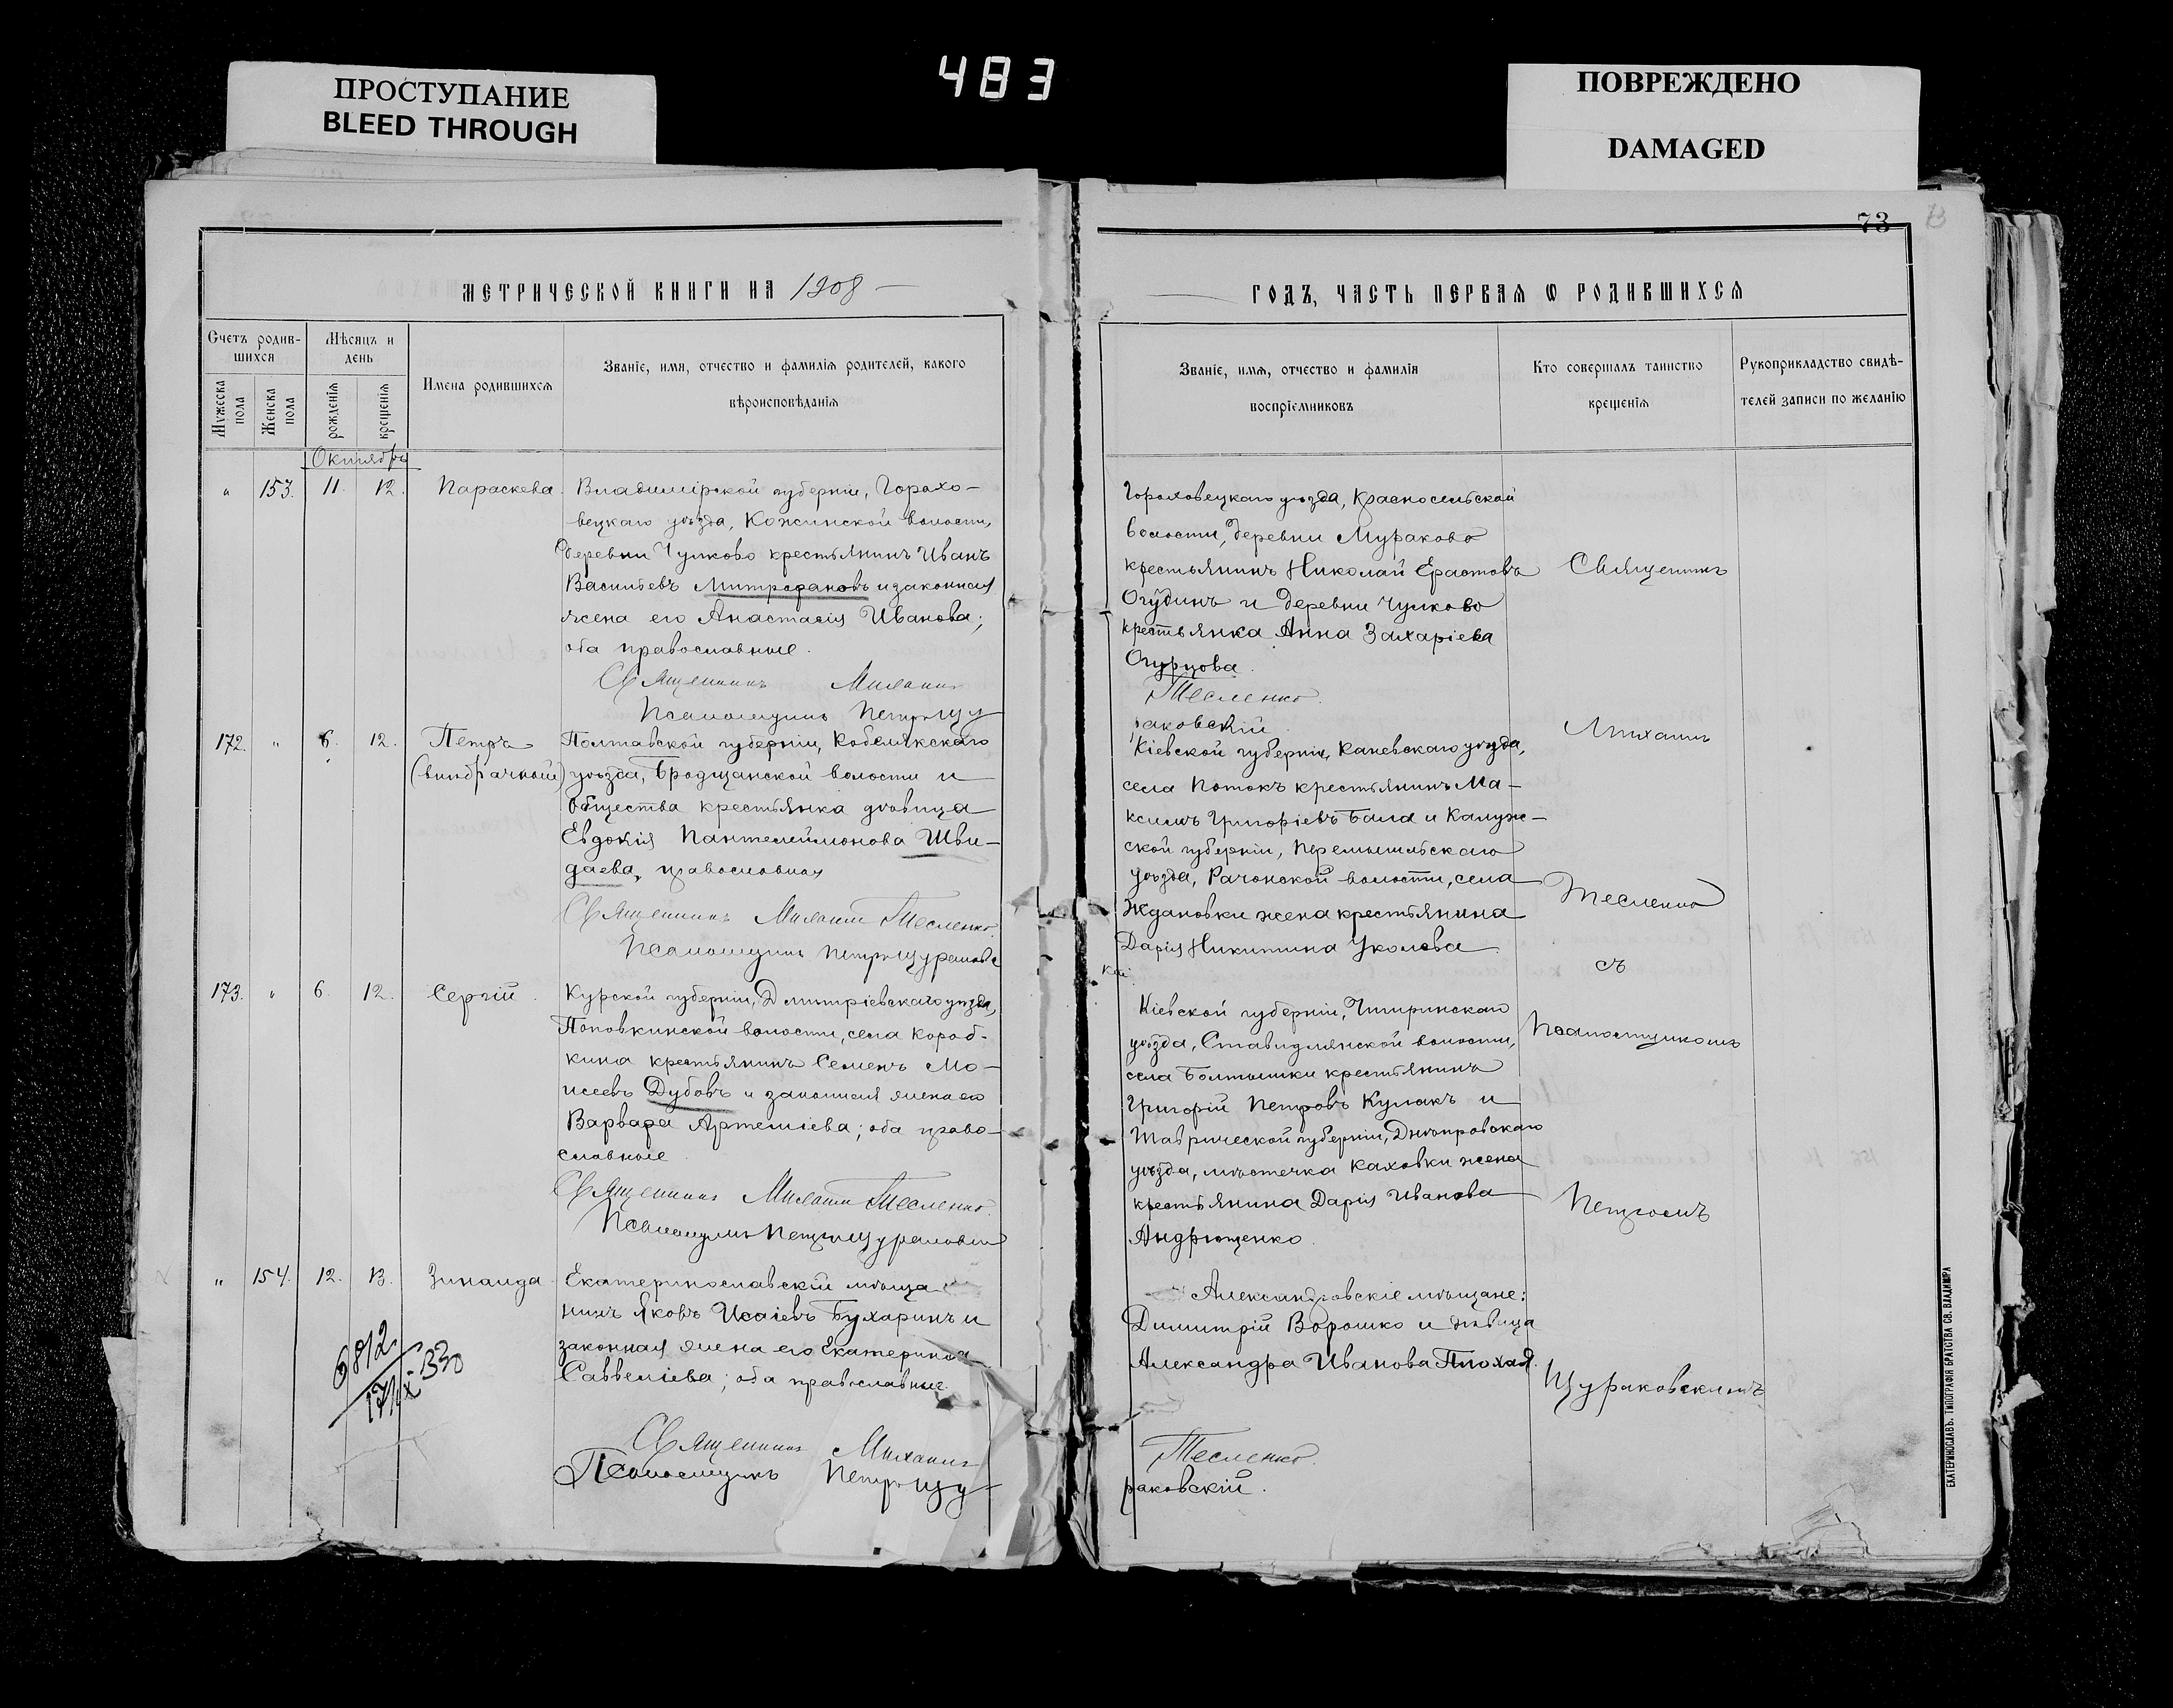 ПРОСТУПАНИЕ
BLEED THROUGH
483
ПОВРЕЖДЕНО
DAMAGED
МЕТРИЧЕСКОЙ КНИГИ НА 1908
Счетъ родив-
шихся
Мѣсяцъ и
день
Имена родившихся
Званіе, имя, отчество и фамилія родителей, какого
вѣроисповѣданія
Мужеска
пола
Женска
пола
рожденія
крещенія
Октября
" 153. 11. 12. Параскева
Владимірской губерніи, Горохо-
вецкаго уѣзда, Кожинской волости,
деревни Чулково крестьянинъ Иванъ
Васильевъ Митрофановъ и законная
жена его Анастасія Иванова;
оба православные.
Священникъ Михаилъ
Псаломщикъ Петръ Щу
172. " 6. 12. Петръ
(внѣбрачной)
Полтавской губерніи, Кобелякскаго
уѣзда, Бродщанской волости и
общества крестьянка дѣвица
Евдокія Пантелеймонова Шви-
даева, православная
Священникъ Михаилъ Тесленко.
Псаломщикъ Петръ Щураковс
173. " 6. 12. Сергій.
Курской губерніи, Дмитріевскаго уѣзда,
Поповкинской волости, села Короб-
кина крестьянинъ Семенъ Мо-
исеевъ Дубовъ и законная жена его
Варвара Артеміева; оба право-
славные
Священникъ Михаилъ Тесленко.
Псаломщикъ Петръ Щураковскій
" 154. 12. 13. Зинаида
Екатеринославскій мѣща
нинъ Яковъ Исаіевъ Бухаринъ и
законная жена его Екатерина
Саввеліева; оба православные.
6812
Священникъ Михаилъ
Псаломщикъ Петръ Щу
73
73
ГОДЪ, ЧАСТЬ ПЕРВАЯ Ѡ РОДИВШИХСЯ
Званіе, имя, отчество и фамилія
воспріемниковъ
Кто совершалъ таинство
крещенія
Рукоприкладство свидѣ-
телей записи по желанію
Гороховецкаго уѣзда, Красносельской
волости, деревни Мураково
крестьянинъ Николай Ерастовъ
Огудинъ и деревни Чулково
крестьянка Анна Захаріева
Огурцова.
Тесленко.
раковскій.
Кіевской губерніи, Каневскаго уѣзда,
села Потокъ крестьянинъ Ма-
ксимъ Григоріевъ Бала и Калуж-
ской губерніи, Перемышльскаго
уѣзда, Рачонской волости, села
Ждановки жена крестьянина
Дарія Никитина Уколова.
кій.
Кіевской губерніи, Чигиринскаго
уѣзда, Ставидлянской волости,
села Болтышки крестьянинъ
Григорій Петровъ Кулакъ и
Таврической губерніи, Днѣпровскаго
уѣзда, мѣстечка Каховки жена
крестьянина Дарія Иванова
Андрющенко.
Александровскіе мѣщане:
Димитрій Ворошко и дѣвица
Александра Иванова Плохая.
Тесленко.
раковскій.
Священникъ
Михаилъ
Тесленко
съ
Псаломщикомъ
Петромъ
Щураковскимъ.
ЕКАТЕРИНОСЛАВЪ. ТИПОГРАФІЯ БРАТСТВА СВ. ВЛАДИМІРА